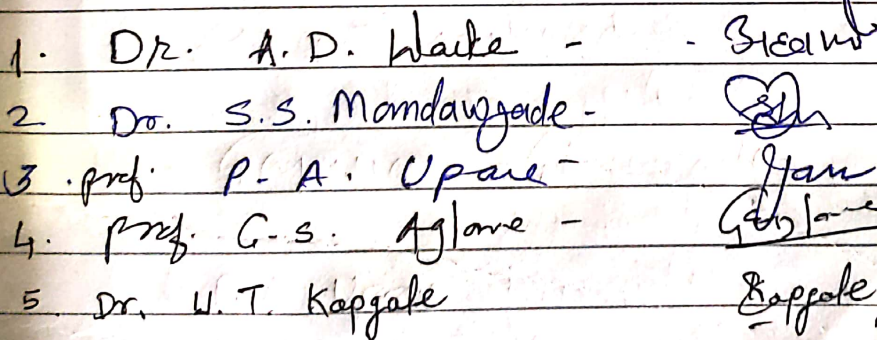 1. Dr. A. D. Wacke - -
2 Dr. S.S. Mamdawgade -
3. prof. P. A. Upare -
4. prof. G. S. Aglawe - GSAglawe
5. Dr. W. T. Kapgate Kapgate